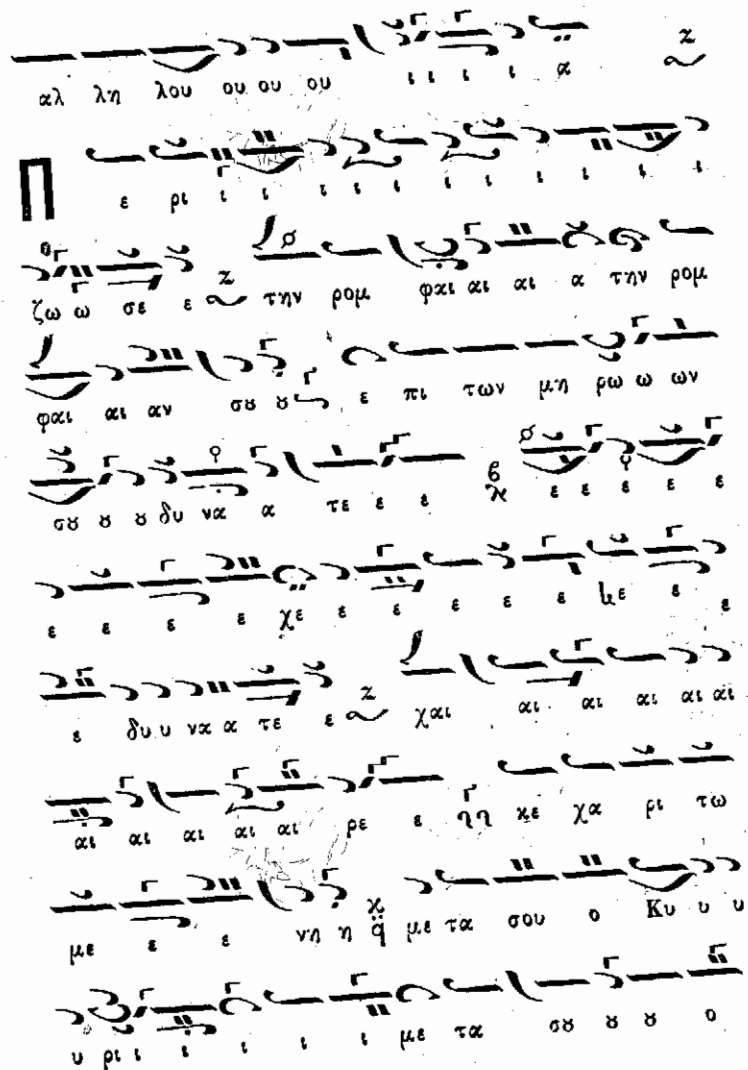 αλ λη λου ου ου ου ι ι ι ι α
Π ε ρι ι ι ι ι ι ι ι ι ι ι ι
ζω ω σε ε την ρομ φαι αι αι α την ρομ
φαι αι αν σȣ ȣ ε πι των μη ρω ω ων
σȣ ȣ ȣ δυ να α τε ε ε ε ε ε ε ε
ε ε ε ε χε ε ε ε ε ε με ε ε
ε δυ υ να α τε ε χαι αι αι αι αι αι
αι αι αι αι αι ρε ε ηη κε χα ρι τω
με ε ε νη η με τα σου ο Κυ υ υ
υ ρι ι ι ι ι ι με τα σȣ ȣ ȣ ο